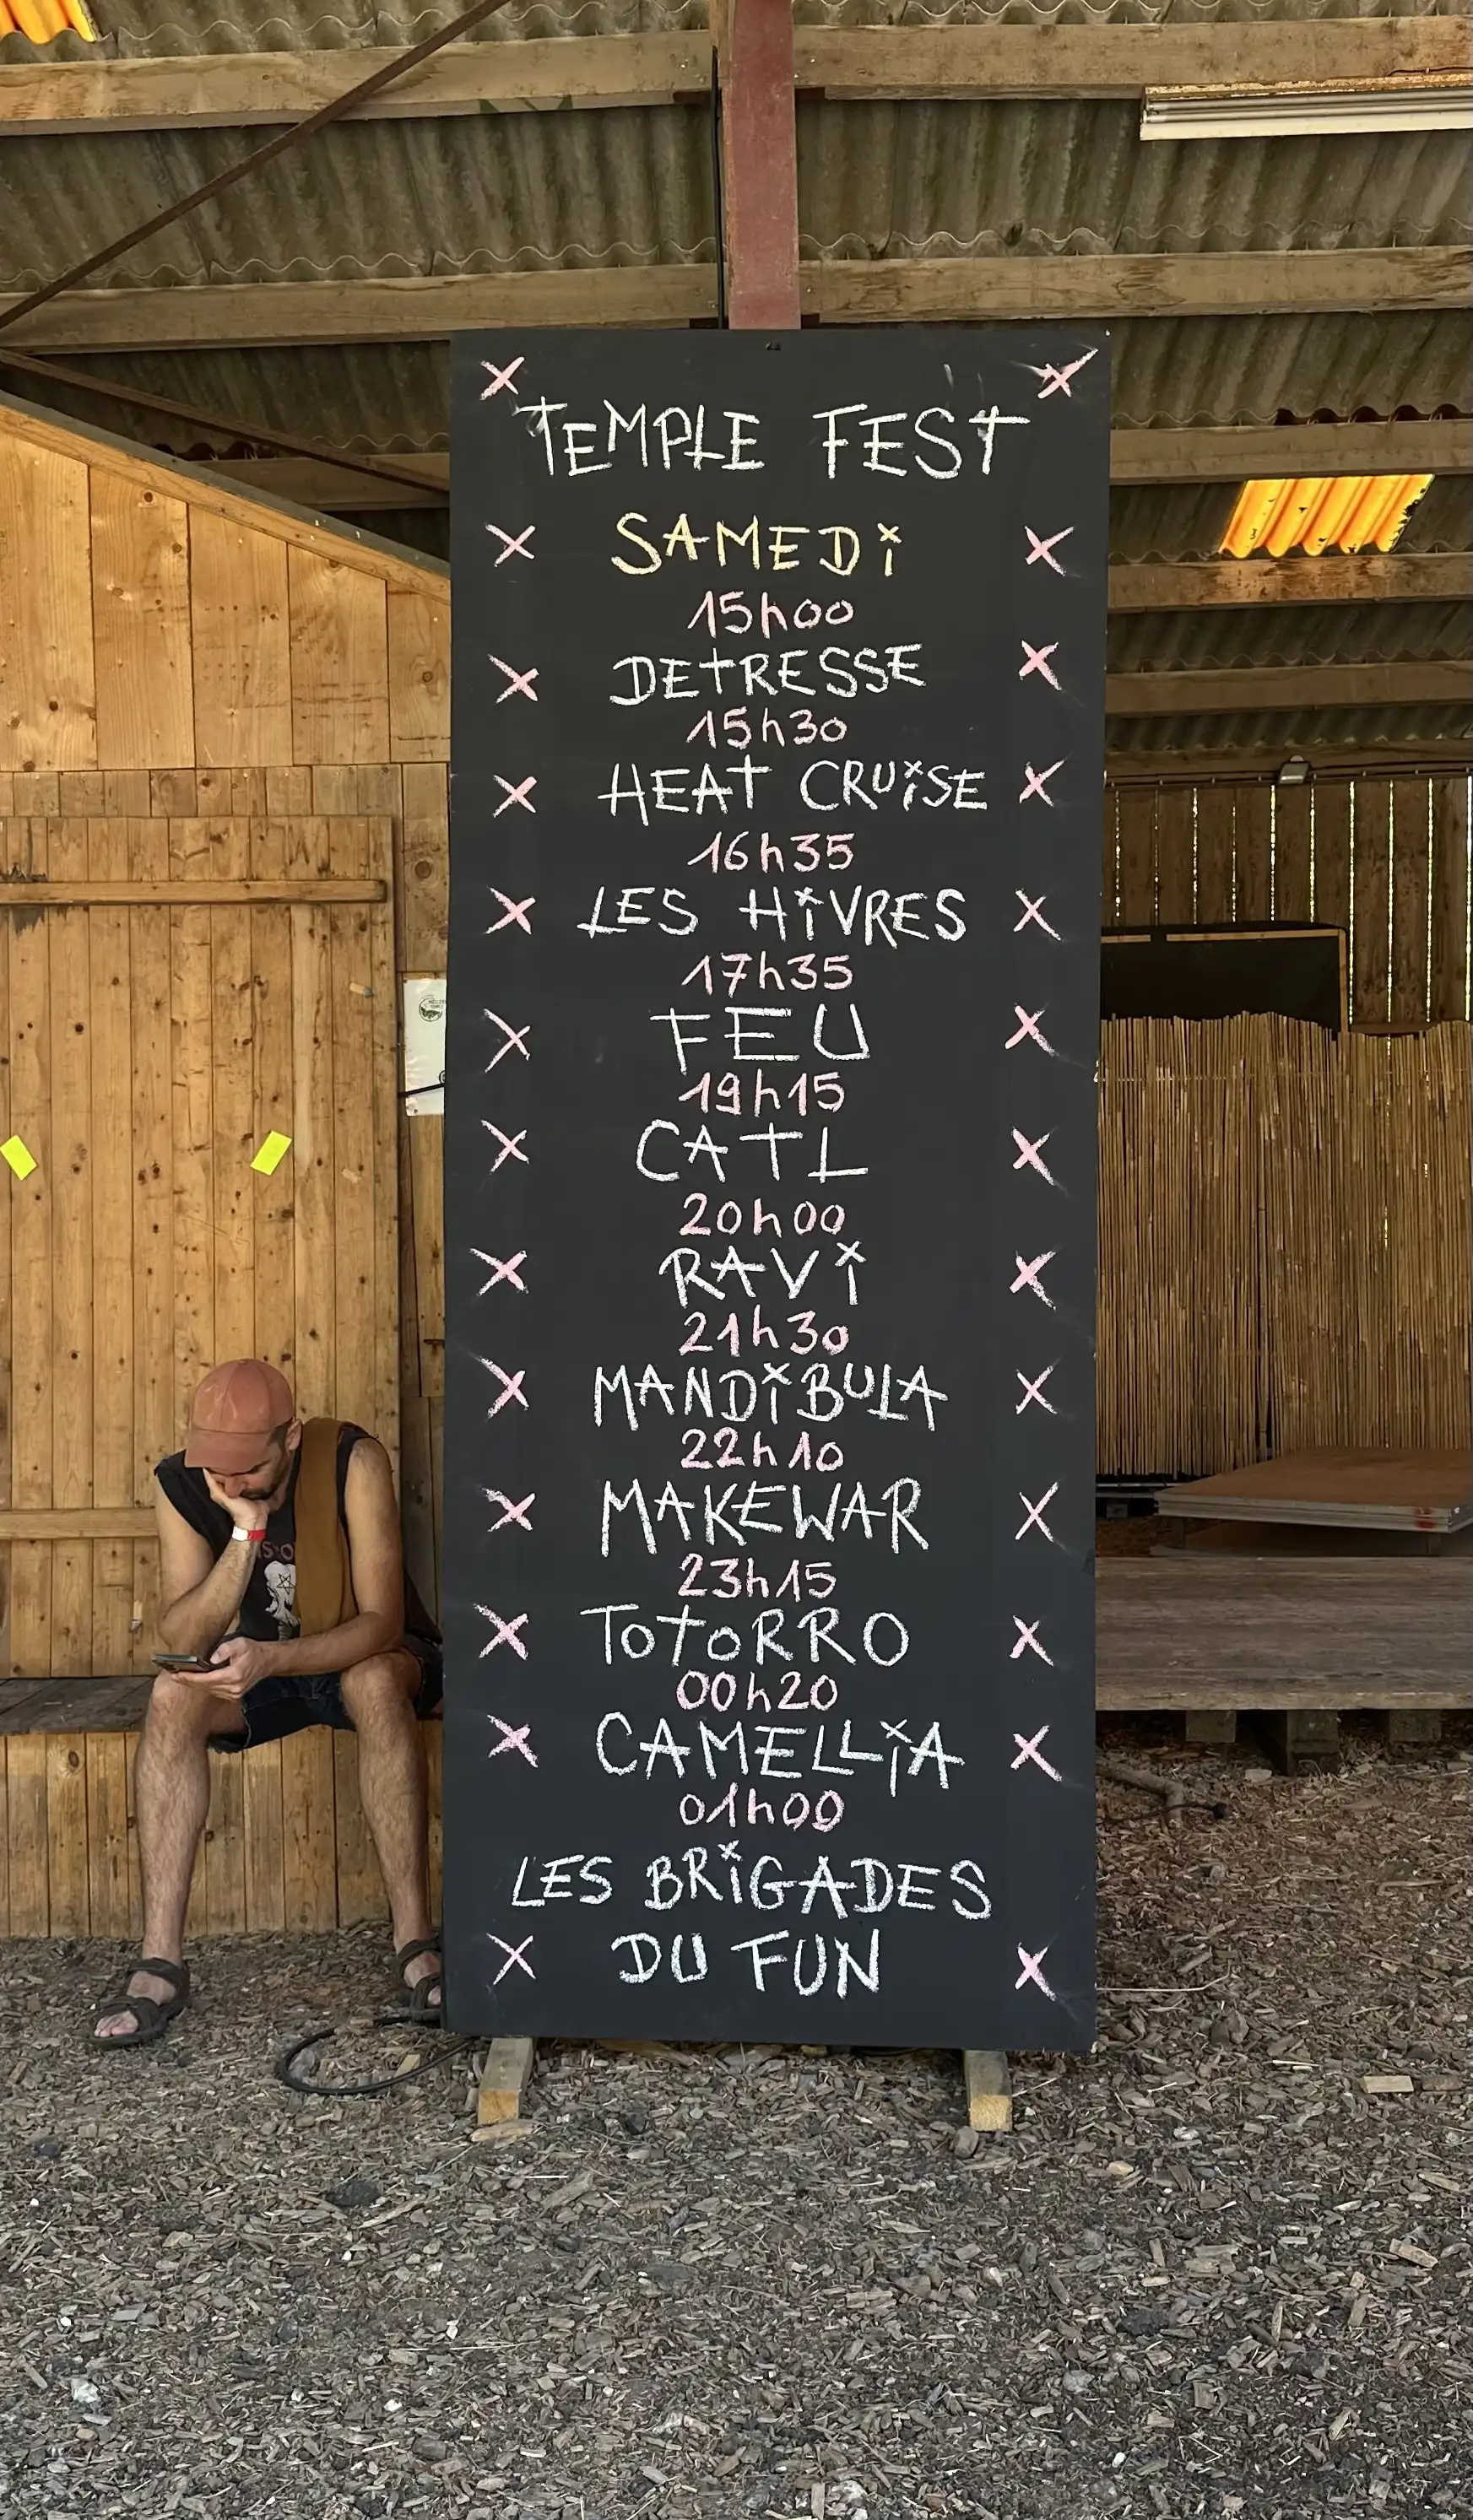 TEMPLE FEST
SAMEDi
15h00
DETRESSE
15h30
HEAT CRUiSE
16h35
LES HiVRES
17h35
FEU
19h15
CATL
20h00
RAVi
21h30
MANDiBULA
22h10
MAKEWAR
23h15
ToToRRO
00h20
CAMELLiA
01h00
LES BRiGADES
DU FUN